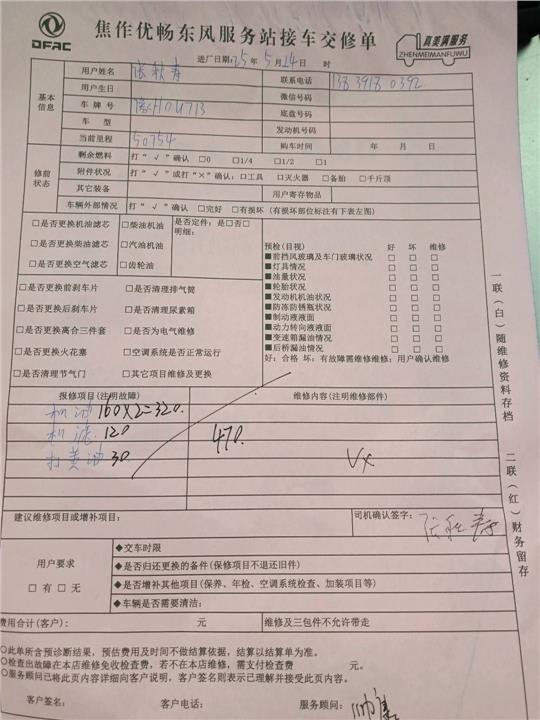 DFAC
焦作优畅东风服务站接车交修单
真美满服务
ZHENMEIMANFUWU
进厂日期:25年5月24日 时
基本信息
用户姓名 张秋寿 联系电话 13839180392
用户生日 微信号码
车牌号 豫H0U713 底盘号码
车型 发动机号码
当前里程 50754 购车时间 年 月 日
修前状态
剩余燃料 打“√”确认 □0 □1/4 □1/2 □1
附件状况 打“√”或打“×”确认:□工具 □灭火器 □备胎 □千斤顶
其它装备 用户寄存物品
车辆外部情况 打“√”确认 □完好 □有损坏(有损坏部位标注有下表左图)
□是否更换机油滤芯 □柴油机油 是否定件:是□否□
明细:
□是否更换柴油滤芯 □汽油机油
□是否更换空气滤芯 □齿轮油
预检(目视) 好 坏 维修
■前挡风玻璃及车门玻璃状况 □ □ □
■灯具情况 □ □ □
■油量状况 □ □ □
■轮胎状况 □ □ □
■发动机机油状况 □ □ □
■防冻防锈瓶状况 □ □ □
■制动液液面 □ □ □
■动力转向液液面 □ □ □
■变速箱漏油情况 □ □ □
■后桥漏油情况 □ □ □
好:合格 坏:有故障需维修维修:用户确认维修
□是否更换前刹车片 □是否清理排气筒
□是否更换后刹车片 □是否清理尿素箱
□是否更换离合三件套 □是否为电气维修
□是否更换火花塞 □空调系统是否正常运行
□是否清理节气门 □其它项目维修及更换
报修项目(注明故障) 维修内容(注明维修部件)
机油 160X2=320.
机滤. 120
打黄油 30
470.
Vx
建议维修项目或增补项目: 司机确认签字:
用户要求
□有 □无
◆交车时限
◆是否归还更换的备件(保修项目不退还旧件)
◆是否增补其他项目(保养、年检、空调系统检查、加装项目等)
◆车辆是否需要清洁:
费用合计(客户): 元 维修及三包件不允许带走
○此单所含预诊断结果,预估费用及时间不做结算依据,结算以结算单为准。
○检查出故障在本店维修免收检查费,若不在本店维修,需支付检查费 元。
○服务顾问已将此页内容详细向客户说明,客户签名则表示已理解并接受此页内容。
客户签名: 客户电话: 服务顾问:
一联(白)随维修资料存档
二联(红)财务留存